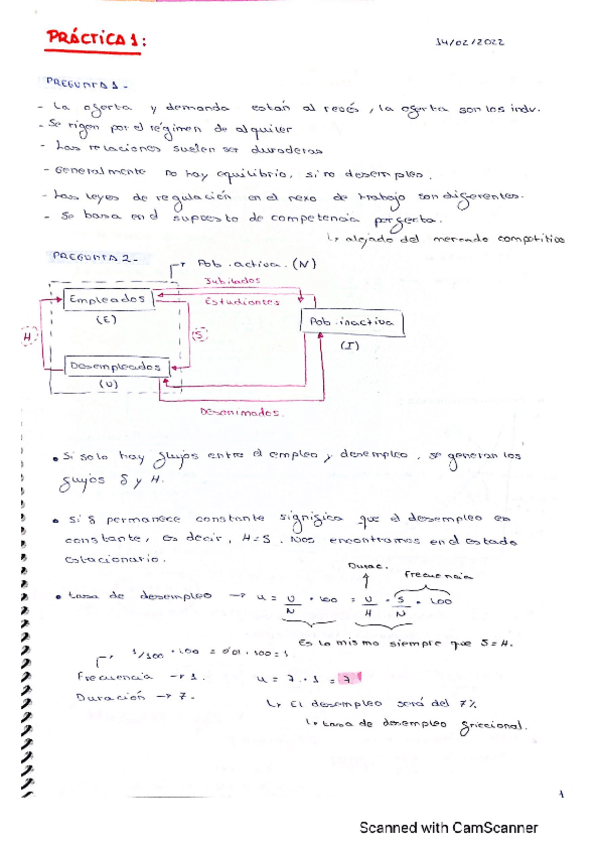 PRÁCTICA 1:
14/02/2022
PREGUNTA 1-
- La oferta y demanda estań al revés, la oferta son los indv.
- Se rigen por el régimen de alquiler
- Las relaciones suelen ser duraderas
- Generalmente no hay equilibrio, si no desempleo.
- Las leyes de regulación en el nexo de trabajo son diferentes.
- Se basa en el supuesto de competencia perfecta.
↳ alejado del mercado competitivo
PREGUNTA 2-
Pob. activa. (N)
Jubilados
Empleados
Estudiantes
(E)
Pob. inactiva
H
S
(I)
Desempleados
(U)
Desanimados.
• Si solo hay flujos entre el empleo y desempleo, se generan los
flujos S y H.
• Si S permanece constante significa que el desempleo es
constante, es decir, H=S. Nos encontramos en el estado
estacionario.
Durac.
Frecuencia
• tasa de desempleo → u = U/N · 100 = U/H · S/N · 100
Es lo mismo siempre que S=H.
1/100 · 100 = 0'01 · 100 = 1
Frecuencia → 1.
u = 7 · 1 = 7
Duración → 7.
↳ El desempleo será del 7%
↳ tasa de desempleo friccional.
1
Scanned with CamScanner